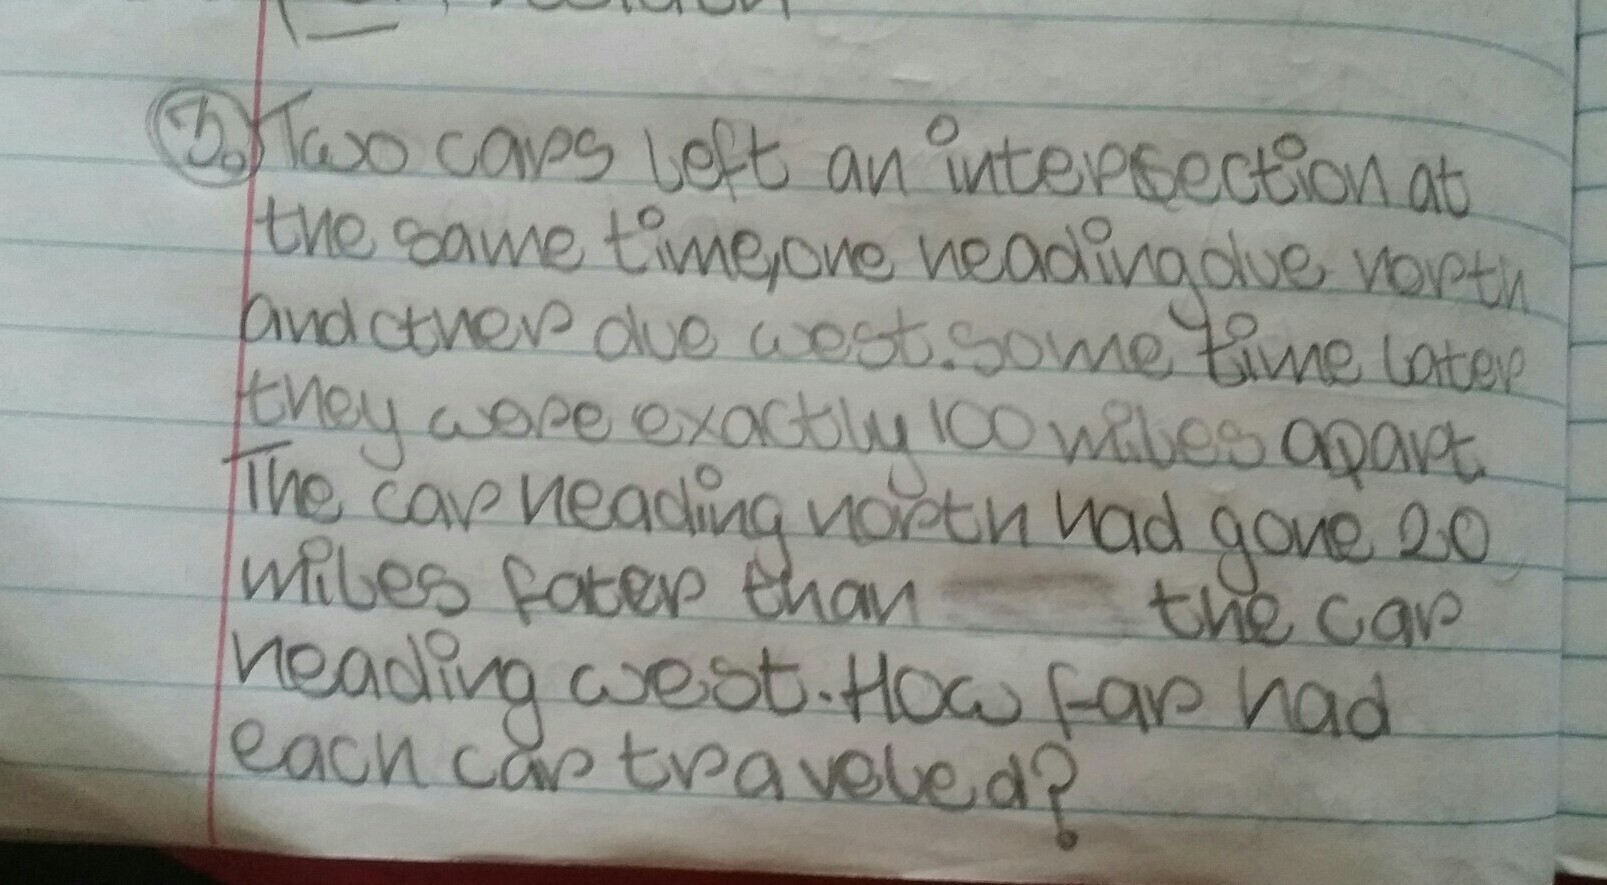 3. Two cars left an intersection at
the same time, one heading due north
and other due west. some time later
they were exactly 100 miles apart.
The car heading north had gone 20
miles fater than the car
heading west. How far had
each car traveled?